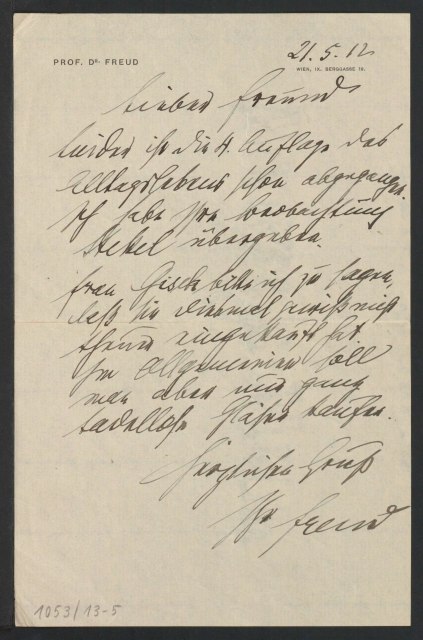 21.5.12
PROF. DR. FREUD
WIEN, IX. BERGGASSE 19.
Lieber Freund
Leider ist die 4. Auflage des
Alltagslebens schon abgegangen.
Ich habe Ihre Beobachtung
Stekel übergeben.
Frau Gisela bitte ich zu sagen,
daß sie diesmal gewiß nicht
theuer eingekauft hat.
Im Allgemeinen soll
man aber nur ganz
tadellose Gläser kaufen.
Herzlichen Gruß
Ihr Freud
1053/13-5